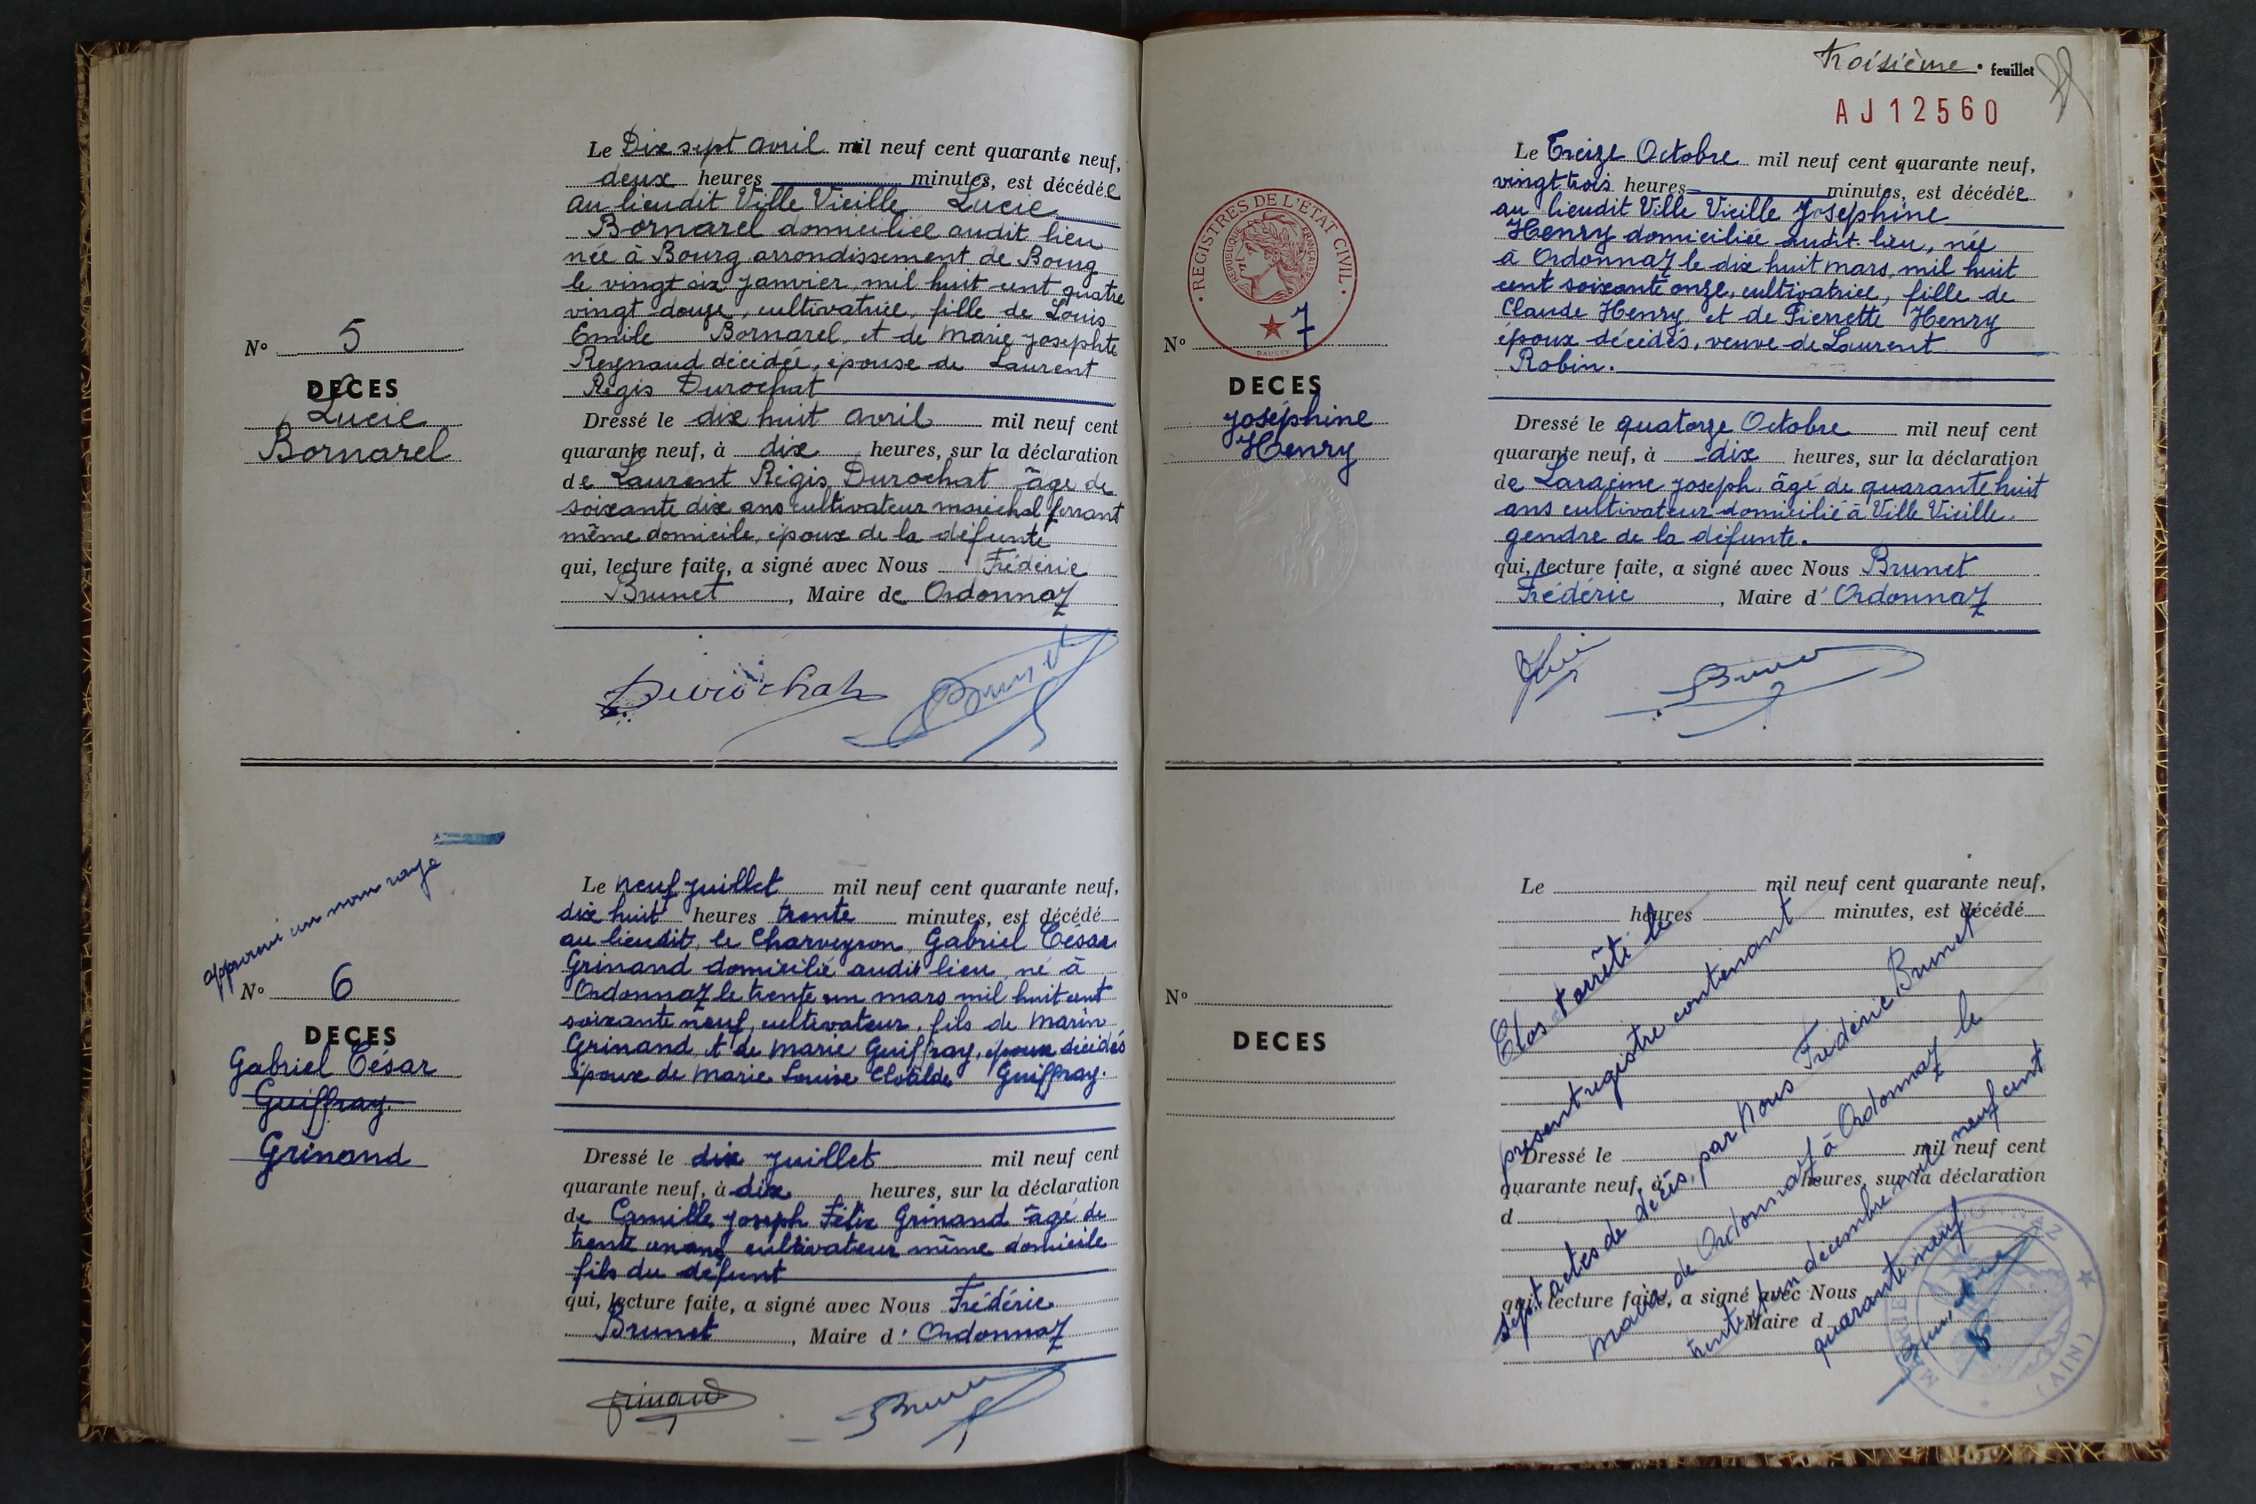 Le Dix sept avril mil neuf cent quarante neuf,
deux heures minutes, est décédée
au lieudit Ville Vieille Lucie
Bornarel domiciliée audit lieu
née à Bourg arrondissement de Bourg
le vingt six janvier mil huit cent quatre
vingt douze, cultivatrice, fille de Louis
Emile Bornarel, et de Marie Josephte
Reynaud décédée, épouse de Laurent
Régis Durochat
N° 5
DECES
Lucie
Bornarel
Dressé le dix huit avril mil neuf cent
quarante neuf, à dix heures, sur la déclaration
de Laurent Régis Durochat âgé de
soixante dix ans cultivateur maréchal ferrant
même domicile, époux de la défunte
qui, lecture faite, a signé avec Nous Frédéric
Brunet, Maire de Ordonnaz
Durochat Brunet
approuvé un nom rayé
N° 6
DECES
Gabriel César
Guiffray
Grinand
Le neuf juillet mil neuf cent quarante neuf,
dix huit heures trente minutes, est décédé
au lieudit le Charveyron Gabriel César
Grinand domicilié audit lieu, né à
Ordonnaz le trente un mars mil huit cent
soixante neuf, cultivateur, fils de Marin
Grinand et de Marie Guiffray, époux décédés
époux de Marie Louise Clotilde Guiffray.
Dressé le dix juillet mil neuf cent
quarante neuf, à dix heures, sur la déclaration
de Camille Joseph Félix Grinand âgé de
trente un ans cultivateur même domicile
fils du défunt
qui, lecture faite, a signé avec Nous Frédéric
Brunet, Maire d' Ordonnaz
Grinand Brunet
troisième feuillet
AJ12560
REGISTRES DE L'ETAT CIVIL
REPUBLIQUE FRANÇAISE
N° 7
DECES
Joséphine
Henry
Le Treize Octobre mil neuf cent quarante neuf,
vingt trois heures minutes, est décédée
au lieudit Ville Vieille Joséphine
Henry domiciliée audit lieu, née
à Ordonnaz le dix huit mars mil huit
cent soixante onze, cultivatrice, fille de
Claude Henry et de Pierrette Henry
époux décédés, veuve de Laurent
Robin.
Dressé le quatorze Octobre mil neuf cent
quarante neuf, à dix heures, sur la déclaration
de Laracine Joseph âgé de quarante huit
ans cultivateur domicilié à Ville Vieille
gendre de la défunte.
qui, lecture faite, a signé avec Nous Brunet
Frédéric, Maire d' Ordonnaz
Brunet
N°
DECES
Le mil neuf cent quarante neuf,
heures minutes, est décédé
Dressé le mil neuf cent
quarante neuf, à heures, sur la déclaration
d
qui, lecture faite, a signé avec Nous
Maire d
Clos et arrêté le
présent registre contenant
sept actes de décès, par Nous Frédéric Brunet
maire de Ordonnaz à Ordonnaz le
trente et un décembre mil neuf cent
quarante neuf
Brunet
(AIN)